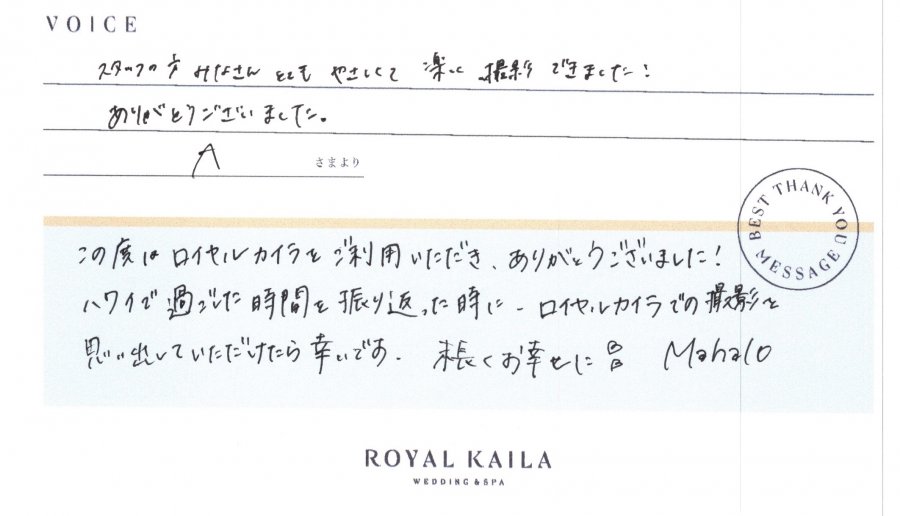 VOICE
スタッフの方 みなさん とても やさしくて 楽しく 撮影 できました!
ありがとうございました。
A さまより
BEST THANK YOU MESSAGE
この度は ロイヤルカイラを ご利用いただき、ありがとうございました!
ハワイで過ごした時間を振り返った時に、ロイヤルカイラでの撮影を
思い出していただけたら幸いです. 末長くお幸せに Mahalo
ROYAL KAILA
WEDDING & SPA